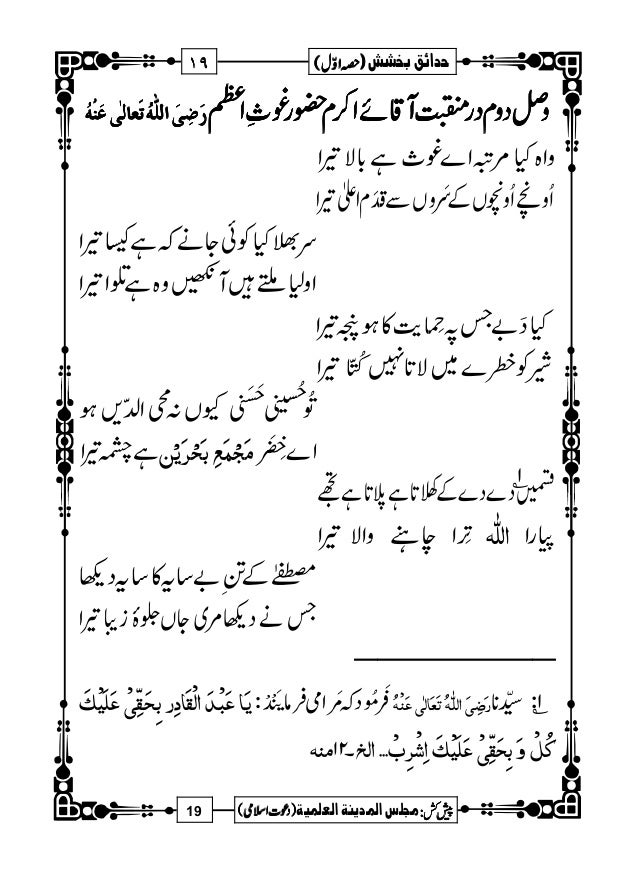 حدائقِ بخشش (حصہ اوّل)
۱۹
وصل دوم در منقبت آقائے اکرم حضور غوثِ اعظم رَضِیَ اللّٰہُ تَعَالٰی عَنْہُ
واہ کیا مرتبہ اے غوث ہے بالا تیرا
اُونچے اُونچوں کے سَروں سے قدَم اعلیٰ تیرا
سر بھلا کیا کوئی جانے کہ ہے کیسا تیرا
اولیا ملتے ہیں آنکھیں وہ ہے تلوا تیرا
کیا دَبے جس پہ حِمایت کا ہو پنجہ تیرا
شیر کو خطرے میں لاتا نہیں کُتّا تیرا
تُو حُسینی حَسَنی کیوں نہ محی الدّیں ہو
اے خِضَر مَجْمَعِ بَحْرَیْن ہے چشمہ تیرا
قسمیں۱؎ دے دے کے کھلاتا ہے پلاتا ہے تجھے
پیارا اللّٰہ تِرا چاہنے والا تیرا
مصطفٰے کے تنِ بے سایہ کا سایہ دیکھا
جس نے دیکھا مری جاں جلوۂ زیبا تیرا
۱؎: سیّدنا رَضِیَ اللّٰہُ تَعَالٰی عَنْہُ فَرمُود کہ مَرا می فرمایند: یَا عَبْدَ الْقَادِرِ بِحَقِّیْ عَلَیْكَ
کُلْ وَ بِحَقِّیْ عَلَیْكَ اِشْرِبْ... الخ۔۱۲ منہ
پیش کش: مجلس المدينة العلمية (دعوتِ اسلامی)
19